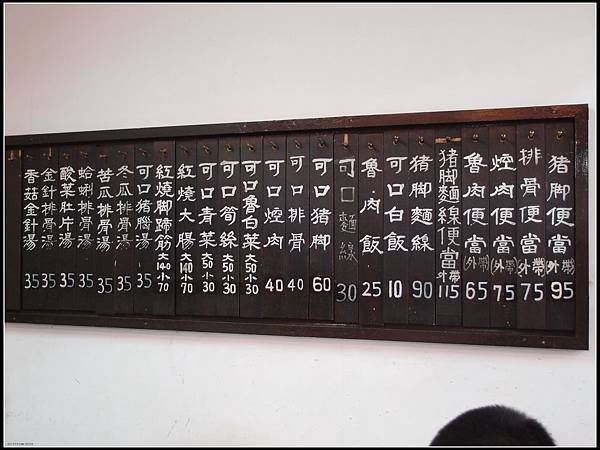 猪脚便當(外帶)95
排骨便當(外帶)75
焢肉便當(外帶)75
魯肉便當(外帶)65
猪脚麵線便當外帶115
猪脚麵絲90
可口白飯10
魯·肉飯25
可口麵線30
可口猪脚60
可口排骨40
可口焢肉40
可口魯白菜大50小30
可口筍絲大50小30
可口青菜大50小30
紅燒大腸大140小70
紅燒脚蹄筋大140小70
可口猪腦湯35
冬瓜排骨湯35
苦瓜排骨湯35
蛤蜊排骨湯35
酸菜肚片湯35
金針排骨湯35
香菇金針湯35